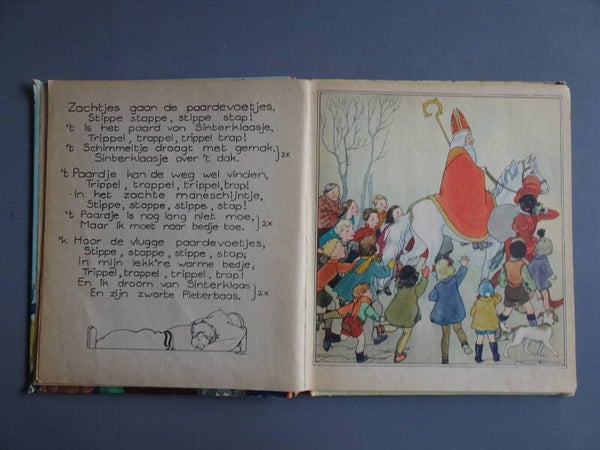 Zachtjes gaan de paardevoetjes,
Stippe stappe, stippe stap!
't Is het paard van Sinterklaasje,
Trippel, trappel, trippel trap!
't Schimmeltje draagt met gemak,
Sinterklaasje over 't dak. }2x
't Paardje kan de weg wel vinden,
Trippel, trappel, trippel, trap!
In het zachte maneschijntje,
Stippe, stappe, stippe, stap!
't Paardje is nog lang niet moe,
Maar ik moet naar bedje toe. }2x
'k Hoor de vlugge paardevoetjes,
Stippe, stappe, stippe, stap;
In mijn lekk're warme bedje,
Trippel, trappel, trippel, trap!
En ik droom van Sinterklaas
En zijn zwarte Pieterbaas. }2x